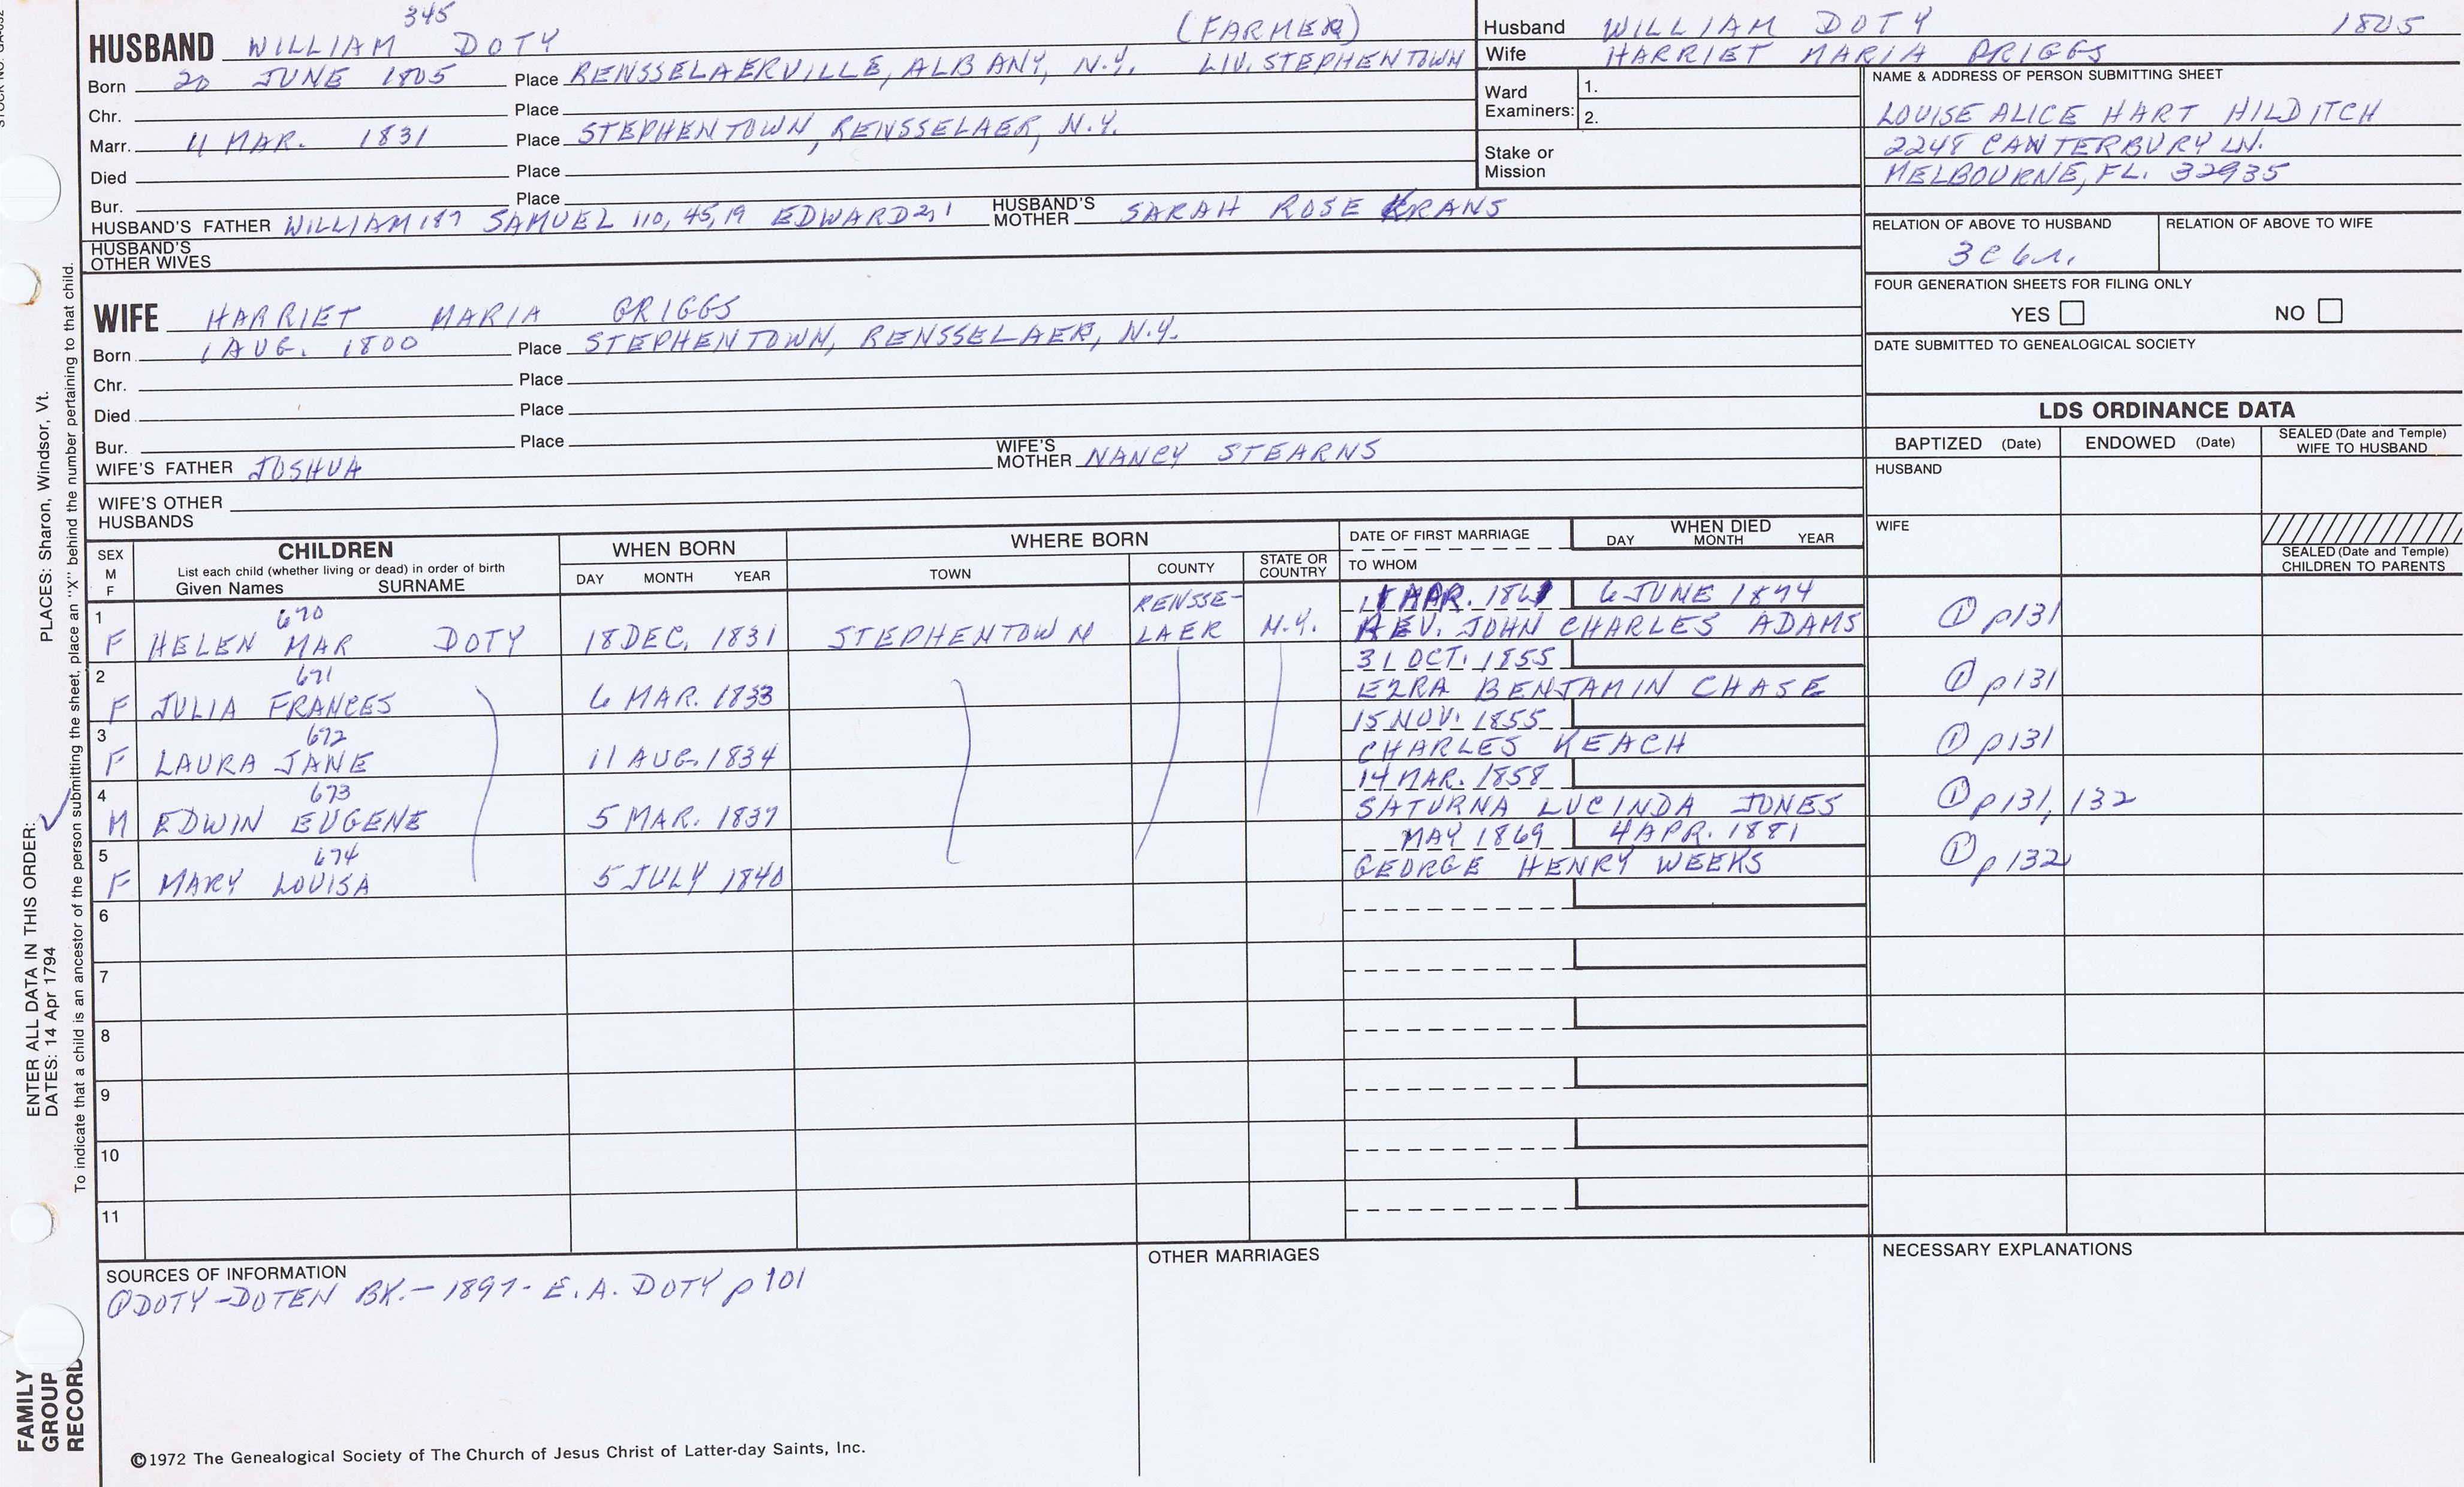 345
HUSBAND WILLIAM DOTY (FARMER)
Born 20 JUNE 1805 Place RENSSELAERVILLE, ALBANY, N.Y. LIV. STEPHENTOWN
Chr. Place
Marr. 11 MAR. 1831 Place STEPHENTOWN, RENSSELAER, N.Y.
Died Place
Bur. Place
HUSBAND'S FATHER WILLIAM 187 SAMUEL 110, 45, 19 EDWARD 2, 1 HUSBAND'S MOTHER SARAH ROSE KRANS
HUSBAND'S OTHER WIVES
WIFE HARRIET MARIA GRIGGS
Born 1 AUG. 1800 Place STEPHENTOWN, RENSSELAER, N.Y.
Chr. Place
Died Place
Bur. Place
WIFE'S FATHER JOSHUA WIFE'S MOTHER NANCY STEARNS
WIFE'S OTHER HUSBANDS
Husband WILLIAM DOTY 1805
Wife HARRIET MARIA GRIGGS
Ward Examiners: 1.
2.
Stake or Mission
NAME & ADDRESS OF PERSON SUBMITTING SHEET
LOUISE ALICE HART HILDITCH
2248 CANTERBURY LN.
MELBOURNE, FL. 32935
RELATION OF ABOVE TO HUSBAND RELATION OF ABOVE TO WIFE
3C6r.
FOUR GENERATION SHEETS FOR FILING ONLY
YES NO
DATE SUBMITTED TO GENEALOGICAL SOCIETY
LDS ORDINANCE DATA
BAPTIZED (Date) ENDOWED (Date) SEALED (Date and Temple) WIFE TO HUSBAND
HUSBAND
WIFE
SEALED (Date and Temple) CHILDREN TO PARENTS
SEX M F
CHILDREN
List each child (whether living or dead) in order of birth
Given Names SURNAME
WHEN BORN
DAY MONTH YEAR
WHERE BORN
TOWN COUNTY STATE OR COUNTRY
DATE OF FIRST MARRIAGE
TO WHOM
WHEN DIED
DAY MONTH YEAR
1 670 RENSSE- MAR. 6 JUNE 1874
F HELEN MAR DOTY 18 DEC. 1831 STEPHENTOWN LAER N.Y. REV. JOHN CHARLES ADAMS ① p131
2 671 31 OCT. 1855
F JULIA FRANCES 6 MAR. 1833 EZRA BENJAMIN CHASE ① p131
3 672 15 NOV. 1855
F LAURA JANE 11 AUG. 1834 CHARLES KEACH ① p131
4 673 14 MAR. 1858
M EDWIN EUGENE 5 MAR. 1837 SATURNA LUCINDA JONES ① p131, 132
5 674 MAY 1869 4 APR. 1881
F MARY LOUISA 5 JULY 1840 GEORGE HENRY WEEKS ① p132
6
7
8
9
10
11
SOURCES OF INFORMATION
① DOTY-DOTEN BK.- 1897- E.A. DOTY p 101
OTHER MARRIAGES
NECESSARY EXPLANATIONS
©1972 The Genealogical Society of The Church of Jesus Christ of Latter-day Saints, Inc.
ENTER ALL DATA IN THIS ORDER: PLACES: Sharon, Windsor, Vt.
DATES: 14 Apr 1794
To indicate that a child is an ancestor of the person submitting the sheet, place an "X" behind the number pertaining to that child.
FAMILY
GROUP
RECORD